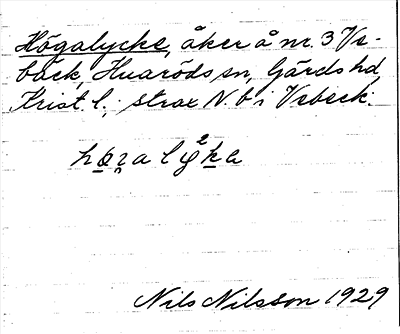 Högalycke, åker å nr. 3 Ve-
bäck, Huaröds sn, Gärds hd,
Krist. l.; strax N. b i Vebeck.
høʒaly²ka
Nils Nilsson 1929